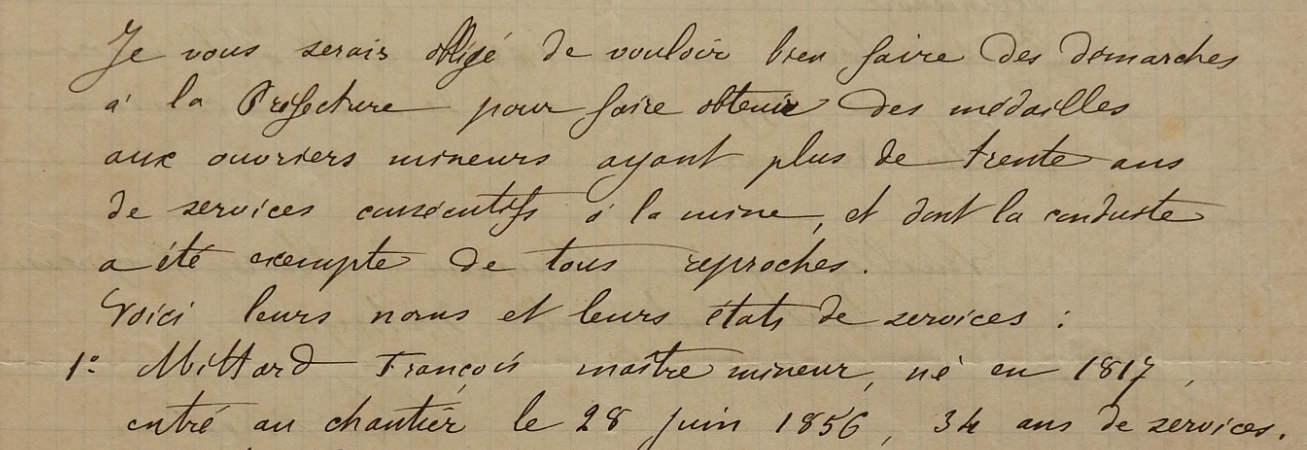 Je vous serais obligé de vouloir bien faire des démarches
à la Préfecture pour faire obtenir des médailles
aux ouvriers mineurs ayant plus de trente ans
de services consécutifs à la mine, et dont la conduite
a été exempte de tous reproches.
Voici leurs noms et leurs états de services :
1° Mittard François maître mineur, né en 1817,
entré au chantier le 28 juin 1856, 34 ans de services.